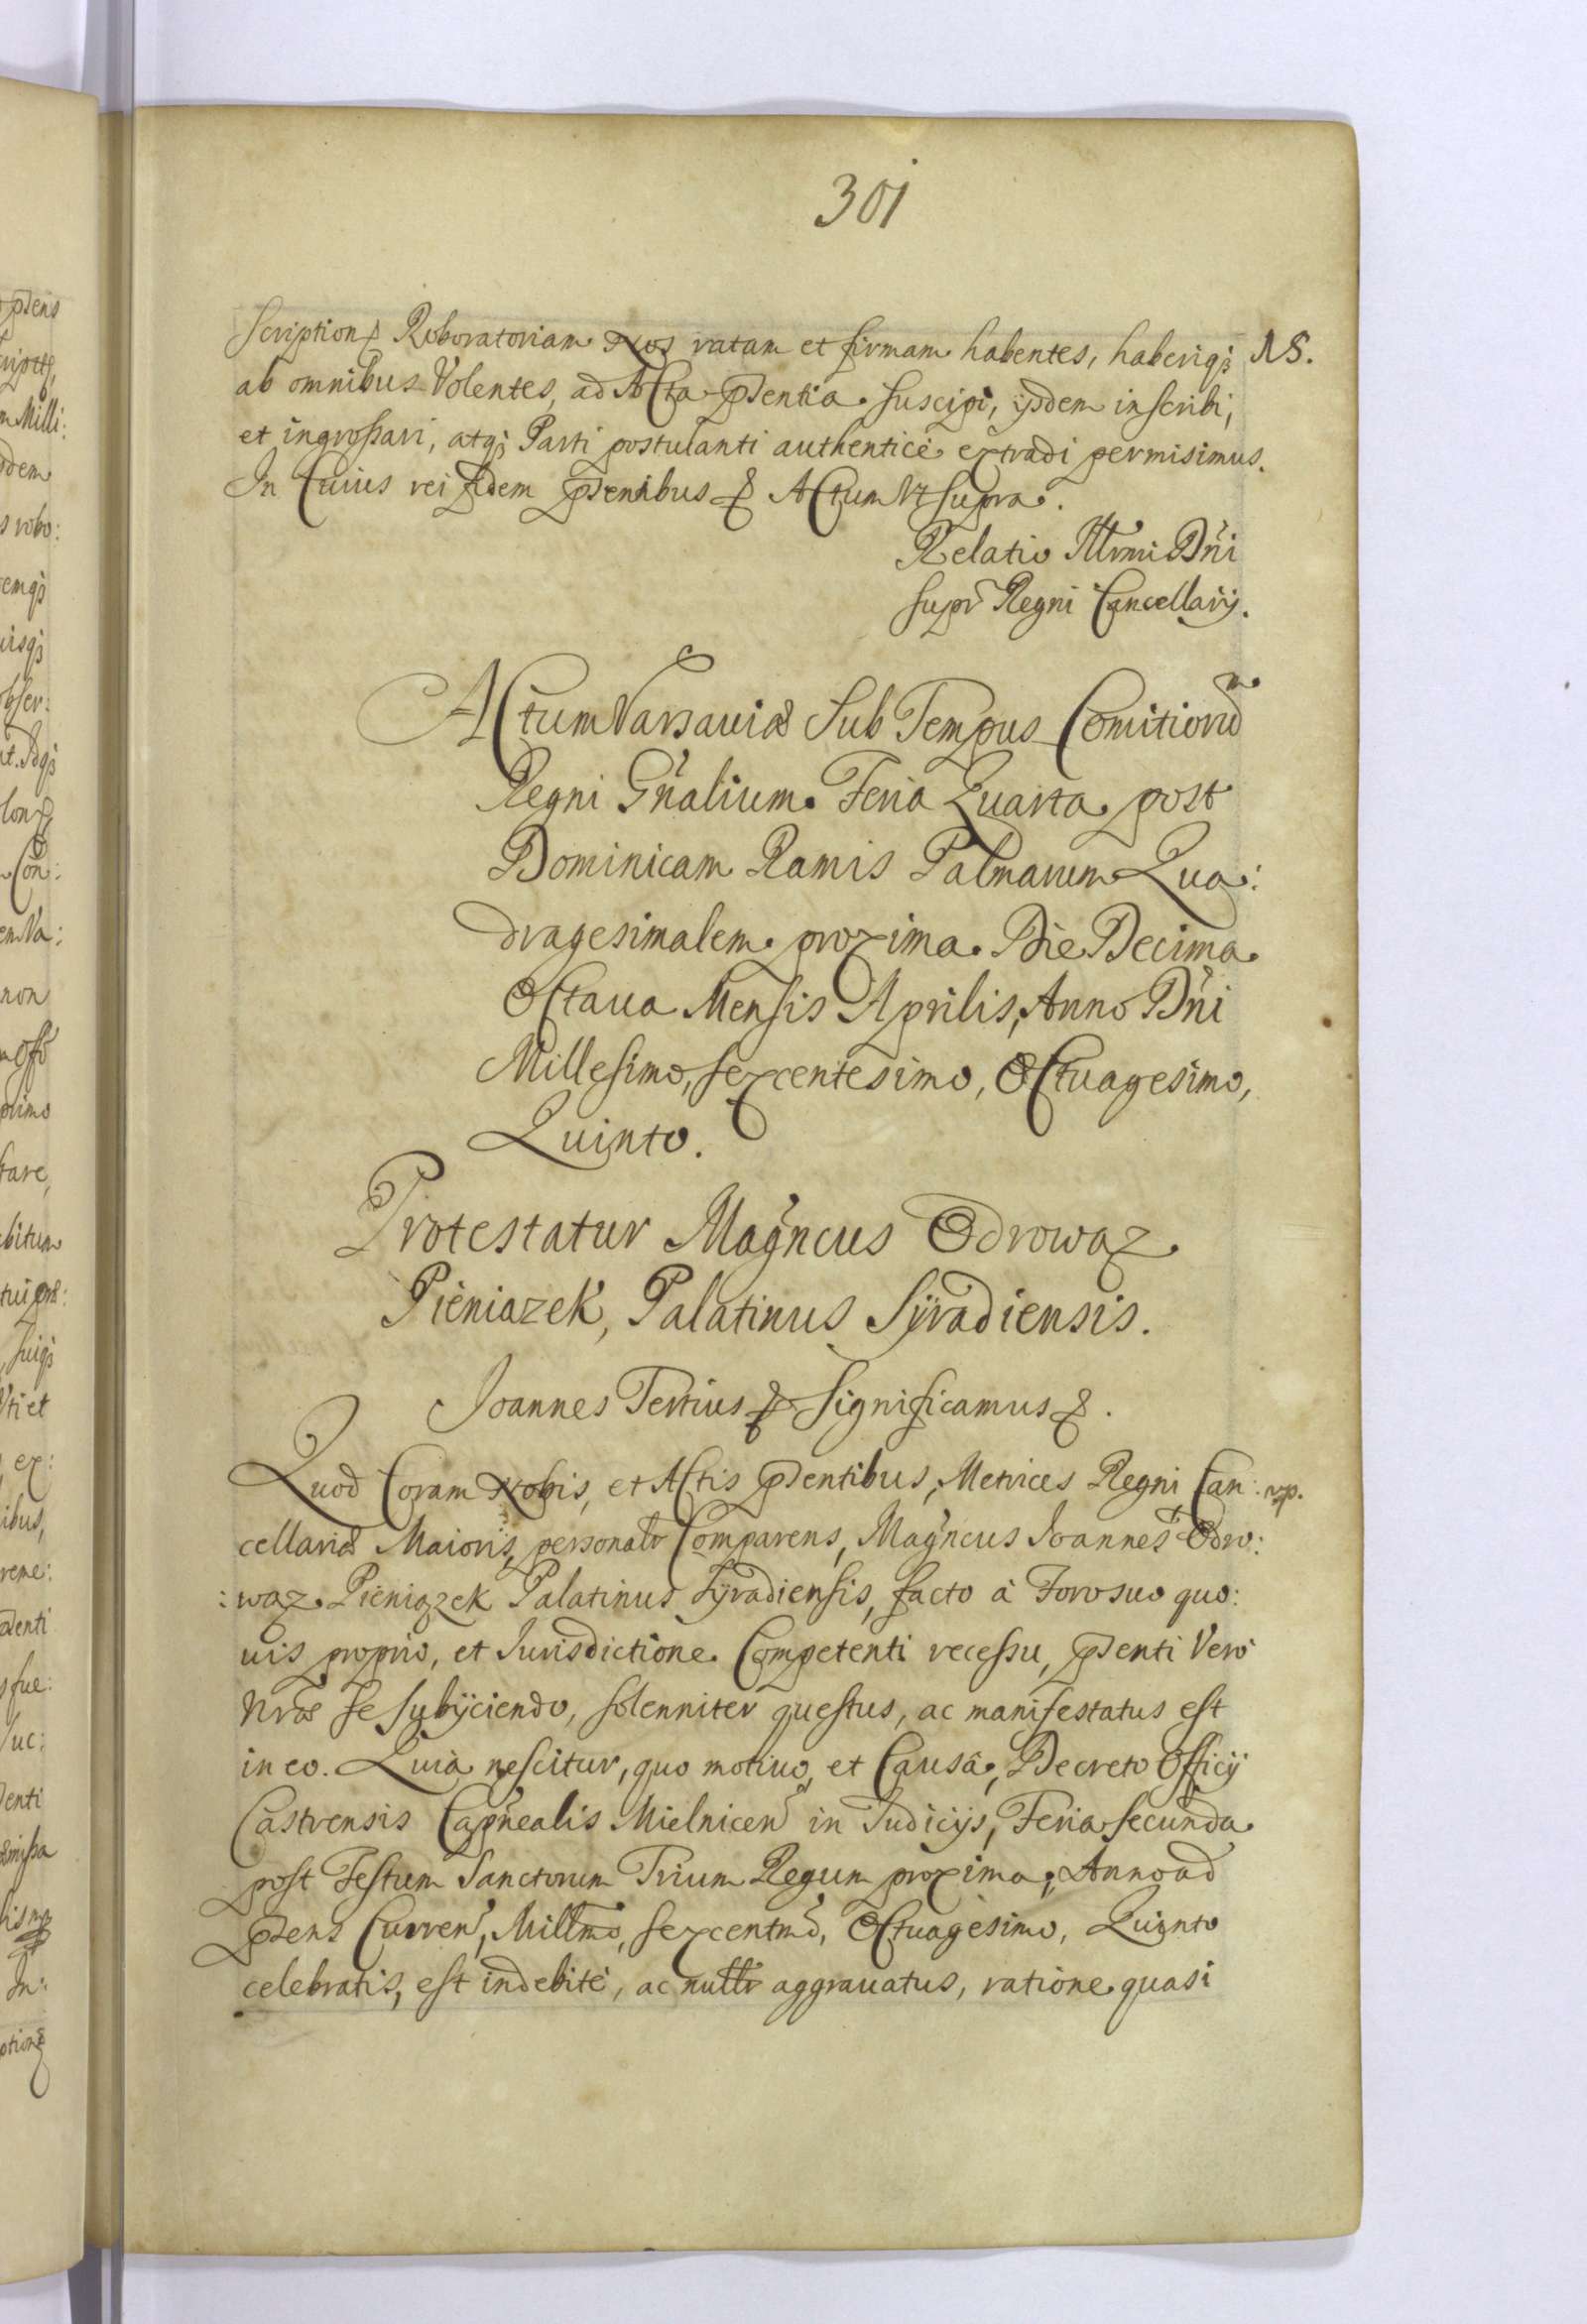 301
scription& Roboratoriam Nos ratam et firmam habentes, haberiqȝ NS.
ab omnibus Volentes, ad Acta pñtentia suscipi, ijsdem inscribi,
et ingrossari, atqȝ Parti postulanti authentice extradi permisimus.
In Cuius rei fidem pñtentibus & Actum Vt supra.
Relatio Illrmi Dñi
supr Regni Cancellarij.
Actum Varsauiæ Sub Tempus Comitiorum
Regni Gñalium. Feria Quarta post
Dominicam Ramis Palmarum Qua:
dragesimalem proxima. Die Decima
Octaua Mensis Aprilis, Anno Dñi
Millesimo, sexcentesimo, Octuagesimo,
Quinto.
Protestatur Magñcus Odrowąz
Pieniazek, Palatinus Syradiensis.
Joannes Tertius & Significamus &.
Quod Coram Nobis, et Actis pñtentibus, Metrices Regni Can: np.
cellariæ Maioris, personalr Comparens, Magñcus Joannes Odro:
:wąz Pieniązek Palatinus Syradiensis, facto à Foro suo quo:
uis proprio, et Jurisdictione Competenti recessu, pñti Vero
Nræ se subijciendo, solenniter questus, ac manifestatus est
in eo. Quia nescitur, quo motiuo, et Causâ, Decreto Officij
Castrensis Capñealis Mielnicen in Judicijs, Feria secunda
post Festum Sanctorum Trium Regum proxima, Anno ad
pñens Curren, Millmo, sexcentmo, Octuagesimo, Quinto
celebratis, est indebite, ac nullr aggrauatus, ratione quasi